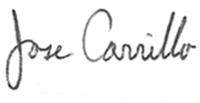 Jose Carrillo